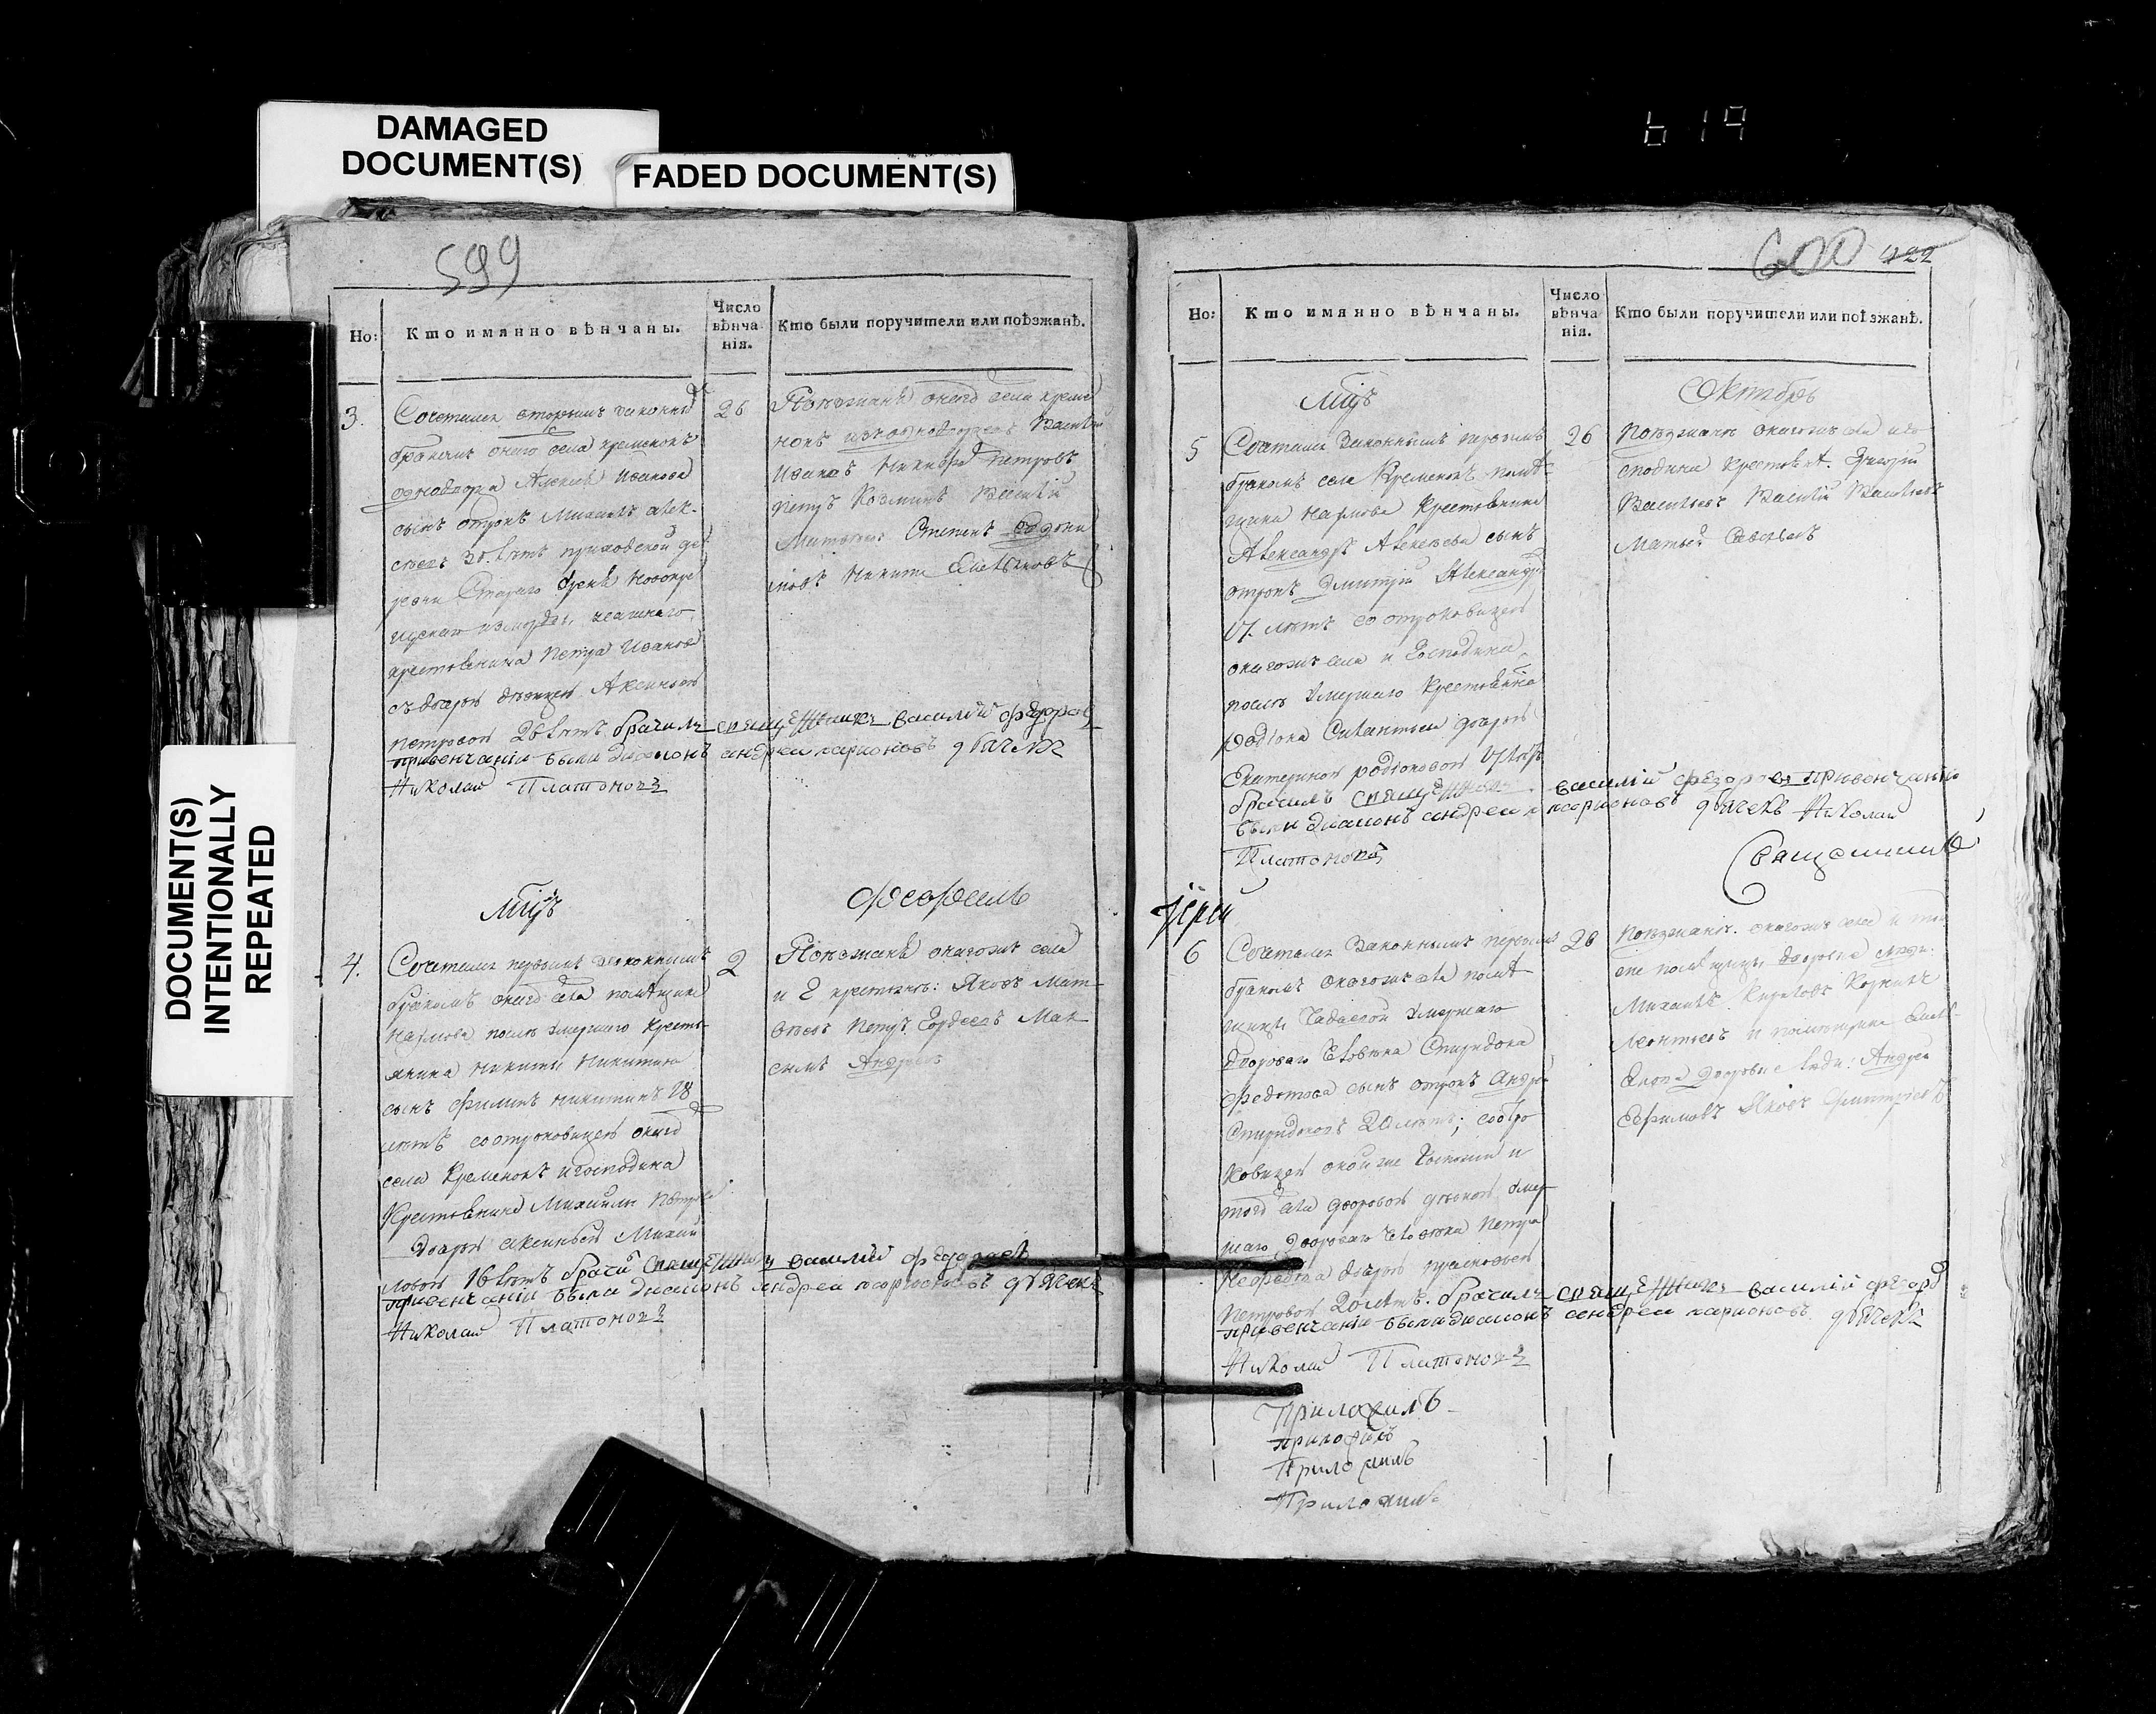 DAMAGED
DOCUMENT(S)
FADED DOCUMENT(S)
DOCUMENT(S)
INTENTIONALLY
REPEATED
619
599
Но:
Кто имянно вѣнчаны.
Число
вѣнча
нія.
Кто были поручители или поѣзжанѣ.
3.
26
Сочетался вторымъ законны
бракомъ онаго села Кременокъ
однодворца Алексея Иванова
сынъ отрокъ Михаилъ Алек-
сеевъ 30 лѣтъ приходской де
крестьянина Петра Иванова
съ дочерью девицею Аксиньею
Петровою 26 лѣтъ брачилъ священникъ василій федоров
привенчаніи были диаконъ андреи ларионовъ дьячекъ
Николай Платоновъ
Поезжанѣ онаго села Креме
нокъ изъ однодворцевъ Василій
Ивановъ Никифоръ Петровъ
Петръ Козминъ Василій
Степанъ
Никита
Мцъ
Февраль
4.
2
Сочетался первымъ законнымъ
бракомъ онаго села помѣщика
Наумова послѣ умершаго кресть-
янина Никиты Никитина
сынъ Филипъ Никитинъ 18
лѣтъ соотроковицею онаго
села Кременокъ и господина
Крестьянина Михаилы Петрова
дочерью Аксиньею Михаи
ловою 16 лѣтъ брачи священникъ василій федоровъ
привенчаніи были диаконъ андреи ларионовъ дьячекъ
Николай Платоновъ
Поѣзжанѣ онагожъ села
и Г крестьянъ: Яковъ Мат-
вѣевъ Петръ Гордеевъ Мак
симъ Андреевъ
600 422
Но:
Кто имянно вѣнчаны.
Число
вѣнча
нія.
Кто были поручители или поѣзжанѣ.
Мцъ
Октябрь
5
26
Сочетался Законнымъ первымъ
бракомъ села Кременокъ помѣ-
щика Наумова крестьянина
Александра Алексѣева сынъ
отрокъ Дмитрій Александр
17 лѣтъ со отроковицею
онагожъ села и Господина
послѣ умершаго крестьянина
Родіона Силантьева дочерью
Екатериною родіоновою 17 лѣтъ
брачилъ священникъ василій федоровъ привенчаніи
были диаконъ андреи ларионовъ дьячекъ Николай
Платоновъ
Поѣзжанѣ онагожъ села и го-
сподина крестьянѣ. Григорій
Васильевъ Василій Васильевъ
Матвей Савельевъ
Священникъ
Іерей
6
26
Сочетался Законнымъ первымъ
бракомъ онагожъ села помѣ-
щицы умершаго
двороваго человѣка Спиридона
Федотова сынъ отрокъ Андрей
Спиридоновъ 20 лѣтъ; соотро
ковицею онойже Госпожи и
тогожъ села дворовой девкою умер
шаго двороваго человѣка Петра
Нефедова дочерью прасковьею
Петровою 20 лѣтъ. брачилъ священникъ василій федоров
привенчаніи были диаконъ андреи ларионовъ дьячекъ
Николай Платоновъ
Поѣзжанѣ. онагожъ села и той
же помѣщицы, дворовые люди:
Михаилъ Кириловъ Корнилъ
Леонтьевъ и помѣщика
дворовые Люди: Андрей
Ефимовъ Яковъ Дмитріевъ
Приложилъ
приложилъ
Приложилъ
Приложилъ